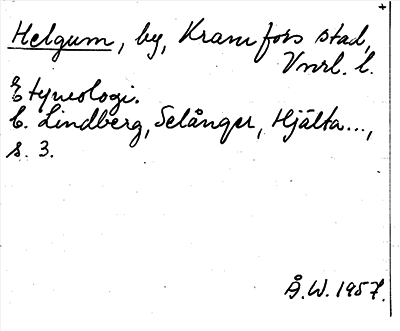 Helgum, by, Kramfors stad,
Vnrl. l.
Etymologi.
C. Lindberg, Selånger, Hjälta...,
s. 3.
Å.W. 1957.